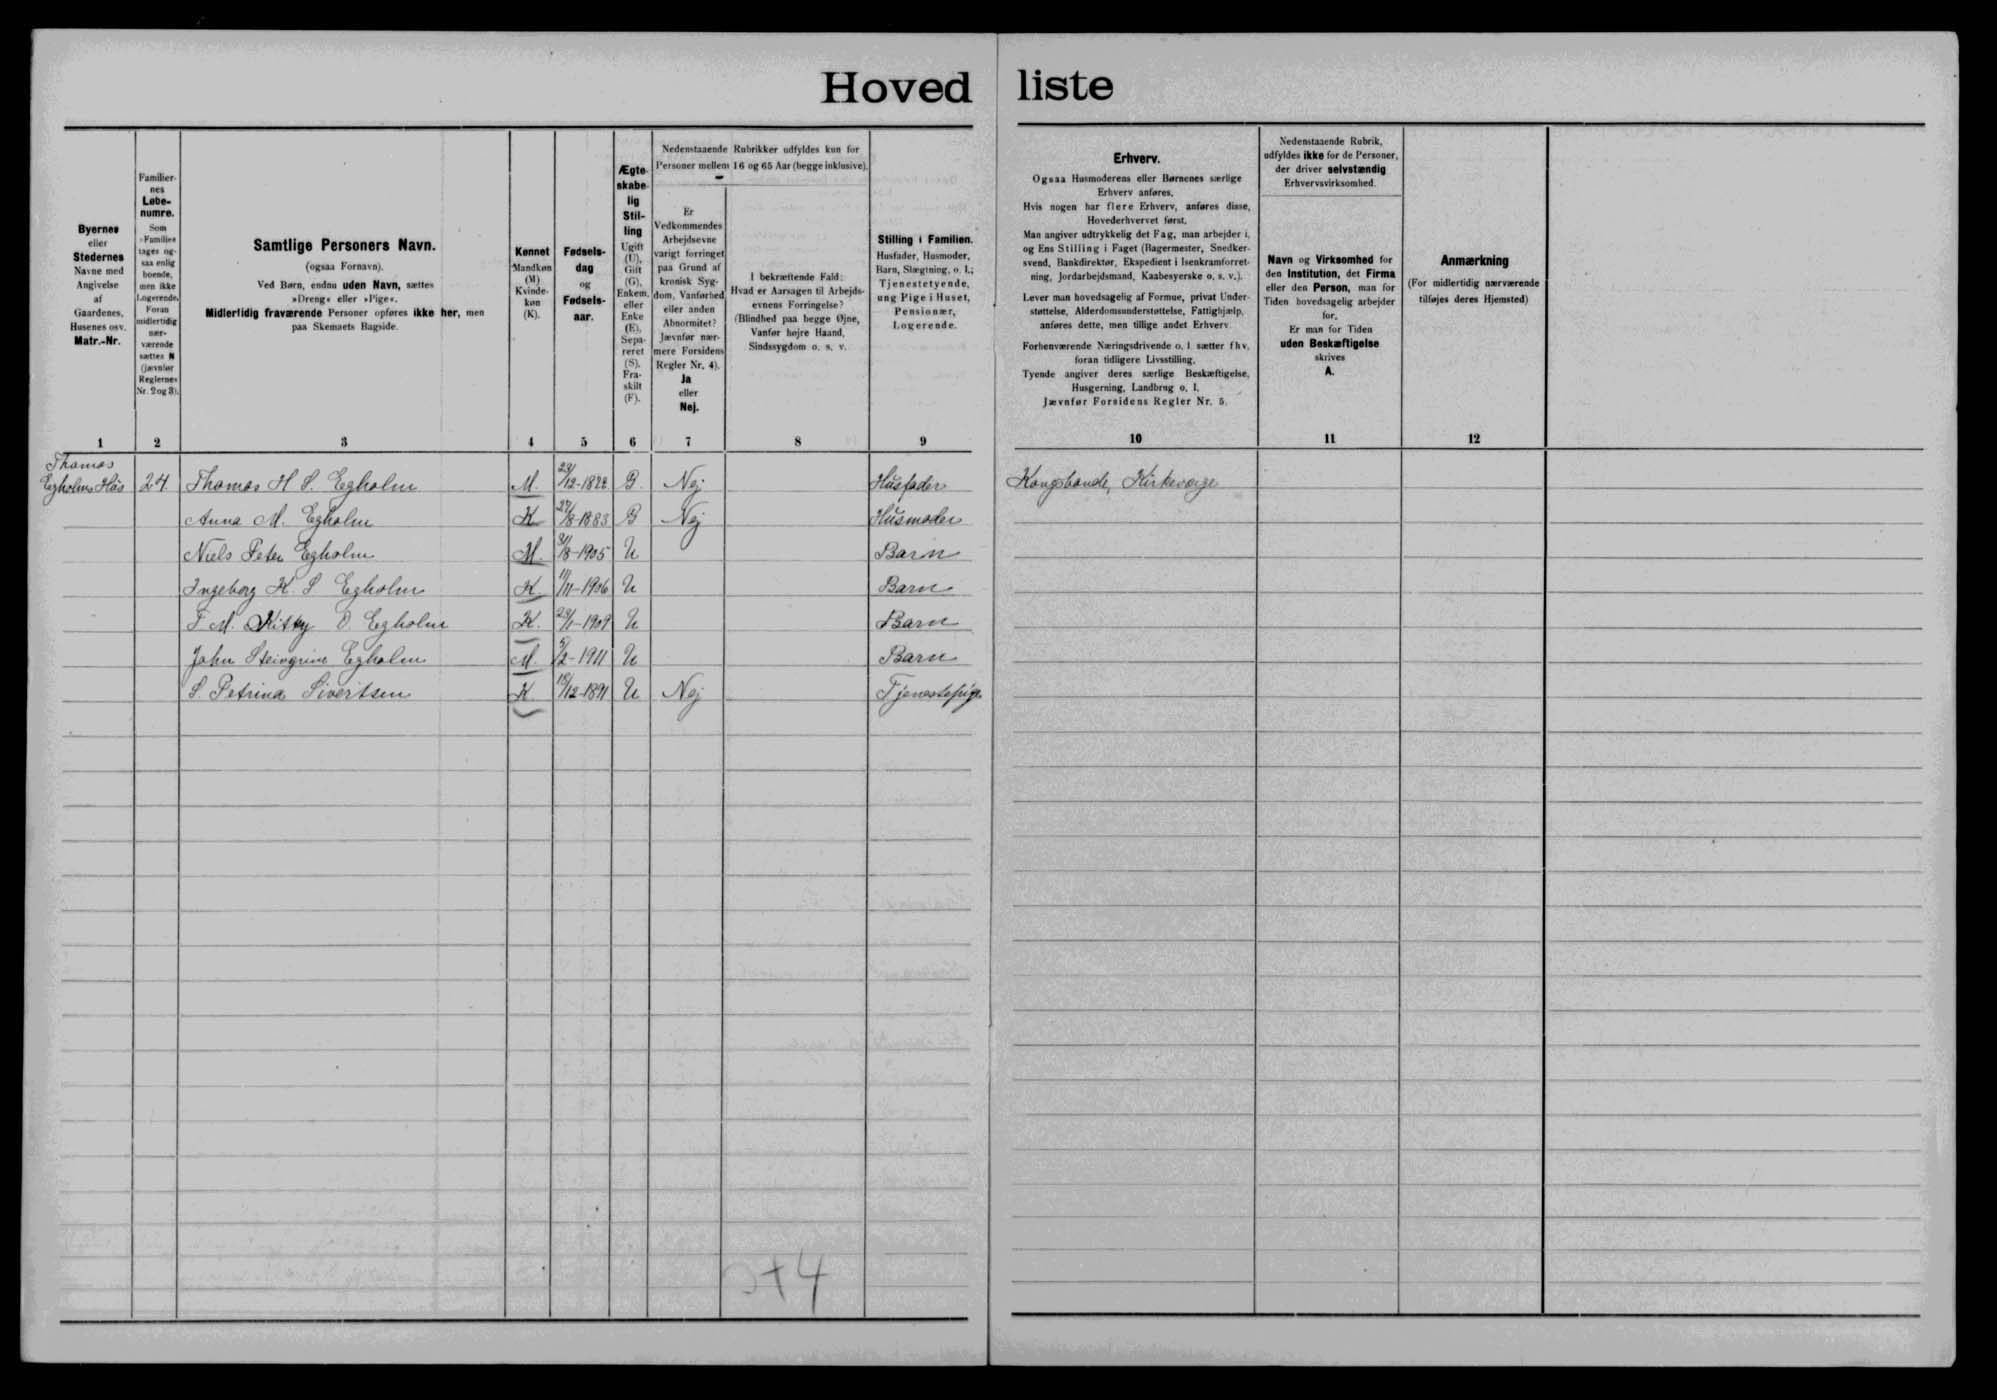 Hoved liste
Byernes
eller
Stedernes
Navne med
Angivelse
af
Gaardenes,
Husenes osv.
Matr.-Nr.
Familier-
nes
Løbe-
numre.
Som
»Familie«
tages og-
saa enlig
boende,
men ikke
Logerende.
Foran
midlertidig
nær-
værende
sættes N
(jævnfør
Reglernes
Nr. 2 og 3).
Samtlige Personers Navn.
(ogsaa Fornavn).
Ved Børn, endnu uden Navn, sættes
»Dreng« eller »Pige«.
Midlertidig fraværende Personer opføres ikke her, men
paa Skemaets Bagside.
Kønnet
Mandkøn
(M)
Kvinde-
køn
(K).
Fødsels-
dag
og
Fødsels-
aar.
Ægte-
skabe-
lig
Stil-
ling
Ugift
(U),
Gift
(G),
Enkem.
eller
Enke
(E),
Sepa-
reret
(S),
Fra-
skilt
(F).
Nedenstaaende Rubrikker udfyldes kun for
Personer mellem 16 og 65 Aar (begge inklusive).
Er
Vedkommendes
Arbejdsevne
varigt forringet
paa Grund af
kronisk Syg-
dom, Vanførhed
eller anden
Abnormitet?
Jævnfør nær-
mere Forsidens
Regler Nr. 4).
Ja
eller
Nej.
I bekræftende Fald:
Hvad er Aarsagen til Arbejds-
evnens Forringelse?
(Blindhed paa begge Øjne,
Vanfør højre Haand,
Sindssygdom o. s. v.
Stilling i Familien.
Husfader, Husmoder,
Barn, Slægtning, o. l.;
Tjenestetyende,
ung Pige i Huset,
Pensionær,
Logerende.
Erhverv.
Ogsaa Husmoderens eller Børnenes særlige
Erhverv anføres.
Hvis nogen har flere Erhverv, anføres disse,
Hovederhvervet først.
Man angiver udtrykkelig det Fag, man arbejder i,
og Ens Stilling i Faget (Bagermester, Snedker-
svend, Bankdirektør, Ekspedient i Isenkramforret-
ning, Jordarbejdsmand, Kaabesyerske o. s. v.).
Lever man hovedsagelig af Formue, privat Under-
støttelse, Alderdomsunderstøttelse, Fattighjælp,
anføres dette, men tillige andet Erhverv.
Forhenværende Næringsdrivende o. l. sætter fhv.
foran tidligere Livsstilling.
Tyende angiver deres særlige Beskæftigelse,
Husgerning, Landbrug o. l.
Jævnfør Forsidens Regler Nr. 5.
Nedenstaaende Rubrik,
udfyldes ikke for de Personer,
der driver selvstændig
Erhvervsvirksomhed.
Navn og Virksomhed for
den Institution, det Firma
eller den Person, man for
Tiden hovedsagelig arbejder
for.
Er man for Tiden
uden Beskæftigelse
skrives
A.
Anmærkning
(For midlertidig nærværende
tilføjes deres Hjemsted)
1 2 3 4 5 6 7 8 9 10 11 12
Thomas
Egholms Hús 24 Thomas H S. Egholm M. 23/12-1882 G. Nej Húsfader Kongsbonde, Kirkeværge
Anna M. Egholm K 27/8-1883 G Nej Húsmoder
Niels Peter Egholm M. 31/8-1905 U Barn
Ingeborg K. S Egholm K. 11/11-1906 U Barn
F M. Kitty D. Egholm K. 29/1-1909 U Barn
John Steingrim Egholm M. 5/2-1911 U Barn
S. Petrina Sivertsen K 18/12-1891 U Nej Tjenestepige